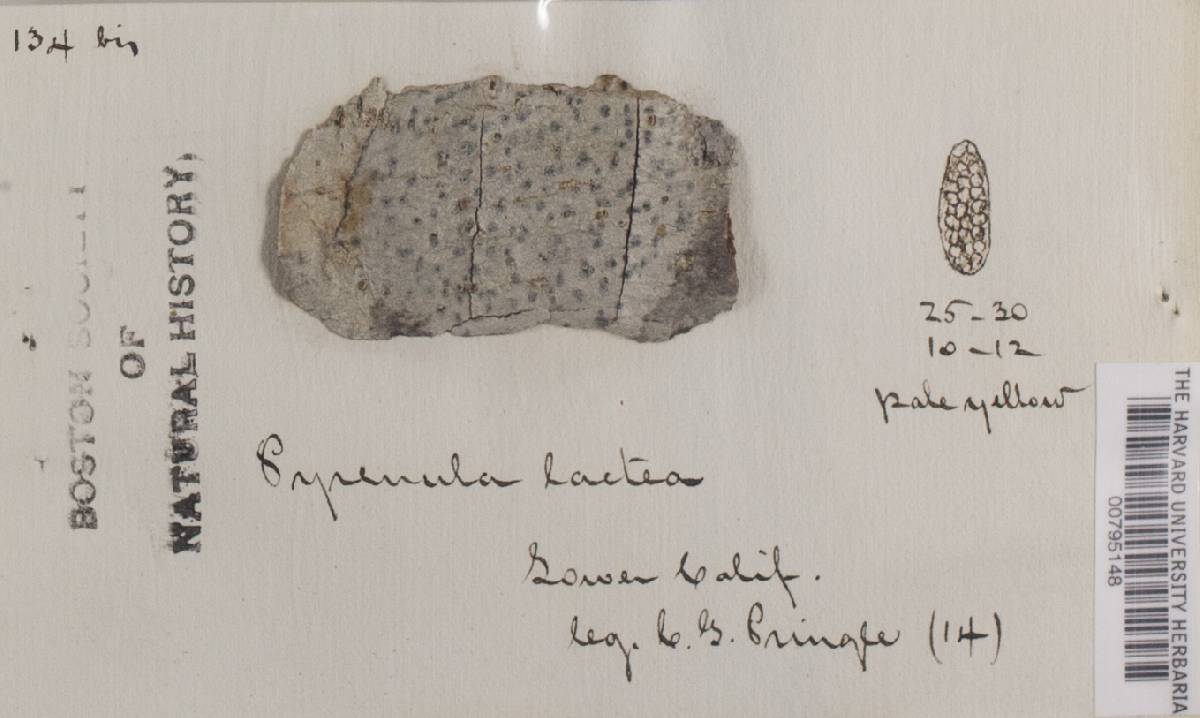 134 bis
BOSTON SOCIETY
OF
NATURAL HISTORY,
25-30
10-12
pale yellow
Pyrenula lactea
Lower Calif.
leg. C. G. Pringle (14)
THE HARVARD UNIVERSITY HERBARIA
00795148